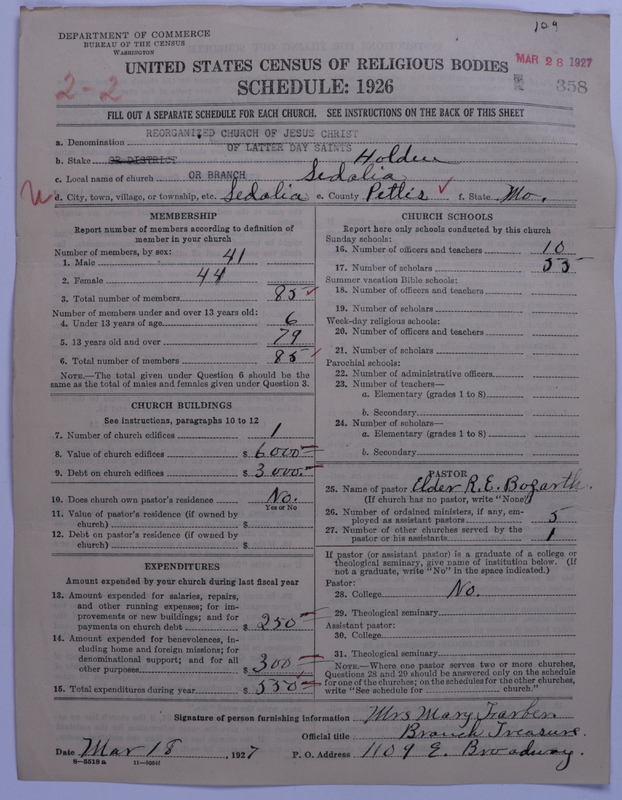 109
DEPARTMENT OF COMMERCE
BUREAU OF THE CENSUS
WASHINGTON
MAR 28 1927
UNITED STATES CENSUS OF RELIGIOUS BODIES
2-2
SCHEDULE: 1926
358
FILL OUT A SEPARATE SCHEDULE FOR EACH CHURCH. SEE INSTRUCTIONS ON THE BACK OF THIS SHEET
REORGANIZED CHURCH OF JESUS CHRIST
a. Denomination
OF LATTER DAY SAINTS
b. Stake OR DISTRICT Holden
c. Local name of church OR BRANCH Sedalia
d. City, town, village, or township, etc. Sedalia e. County Pettis f. State Mo.
MEMBERSHIP
Report number of members according to definition of
member in your church
Number of members, by sex:
1. Male 41
2. Female 44
3. Total number of members 85
Number of members under and over 13 years old:
4. Under 13 years of age 6
5. 13 years old and over 79
6. Total number of members 85
NOTE.—The total given under Question 6 should be the
same as the total of males and females given under Question 3.
CHURCH BUILDINGS
See instructions, paragraphs 10 to 12
7. Number of church edifices 1
8. Value of church edifices $ 6000
9. Debt on church edifices $ 3000.
10. Does church own pastor's residence No.
Yes or No
11. Value of pastor's residence (if owned by
church) $
12. Debt on pastor's residence (if owned by
church) $
EXPENDITURES
Amount expended by your church during last fiscal year
13. Amount expended for salaries, repairs,
and other running expenses; for im-
provements or new buildings; and for
payments on church debt $ 250
14. Amount expended for benevolences, in-
cluding home and foreign missions; for
denominational support; and for all
other purposes $ 300
15. Total expenditures during year $ 550
CHURCH SCHOOLS
Report here only schools conducted by this church
Sunday schools:
16. Number of officers and teachers 10
17. Number of scholars 55
Summer vacation Bible schools:
18. Number of officers and teachers
19. Number of scholars
Week-day religious schools:
20. Number of officers and teachers
21. Number of scholars
Parochial schools:
22. Number of administrative officers
23. Number of teachers—
a. Elementary (grades 1 to 8)
b. Secondary
24. Number of scholars—
a. Elementary (grades 1 to 8)
b. Secondary
PASTOR
25. Name of pastor Elder R.E. Bozarth.
(If church has no pastor, write "None")
26. Number of ordained ministers, if any, em-
ployed as assistant pastors 5
27. Number of other churches served by the
pastor or his assistants 1
If pastor (or assistant pastor) is a graduate of a college or
theological seminary, give name of institution below. (If
not a graduate, write "No" in the space indicated.)
Pastor:
28. College No.
29. Theological seminary
Assistant pastor:
30. College
31. Theological seminary
NOTE.—Where one pastor serves two or more churches,
Questions 28 and 29 should be answered only on the schedule
for one of the churches; on the schedules for the other churches,
write "See schedule for church."
Signature of person furnishing information Mrs Mary Farber.
Official title Branch Treasure.
Date Mar 18, 1927 P. O. Address 1109 E. Broadway.
8—5518 a